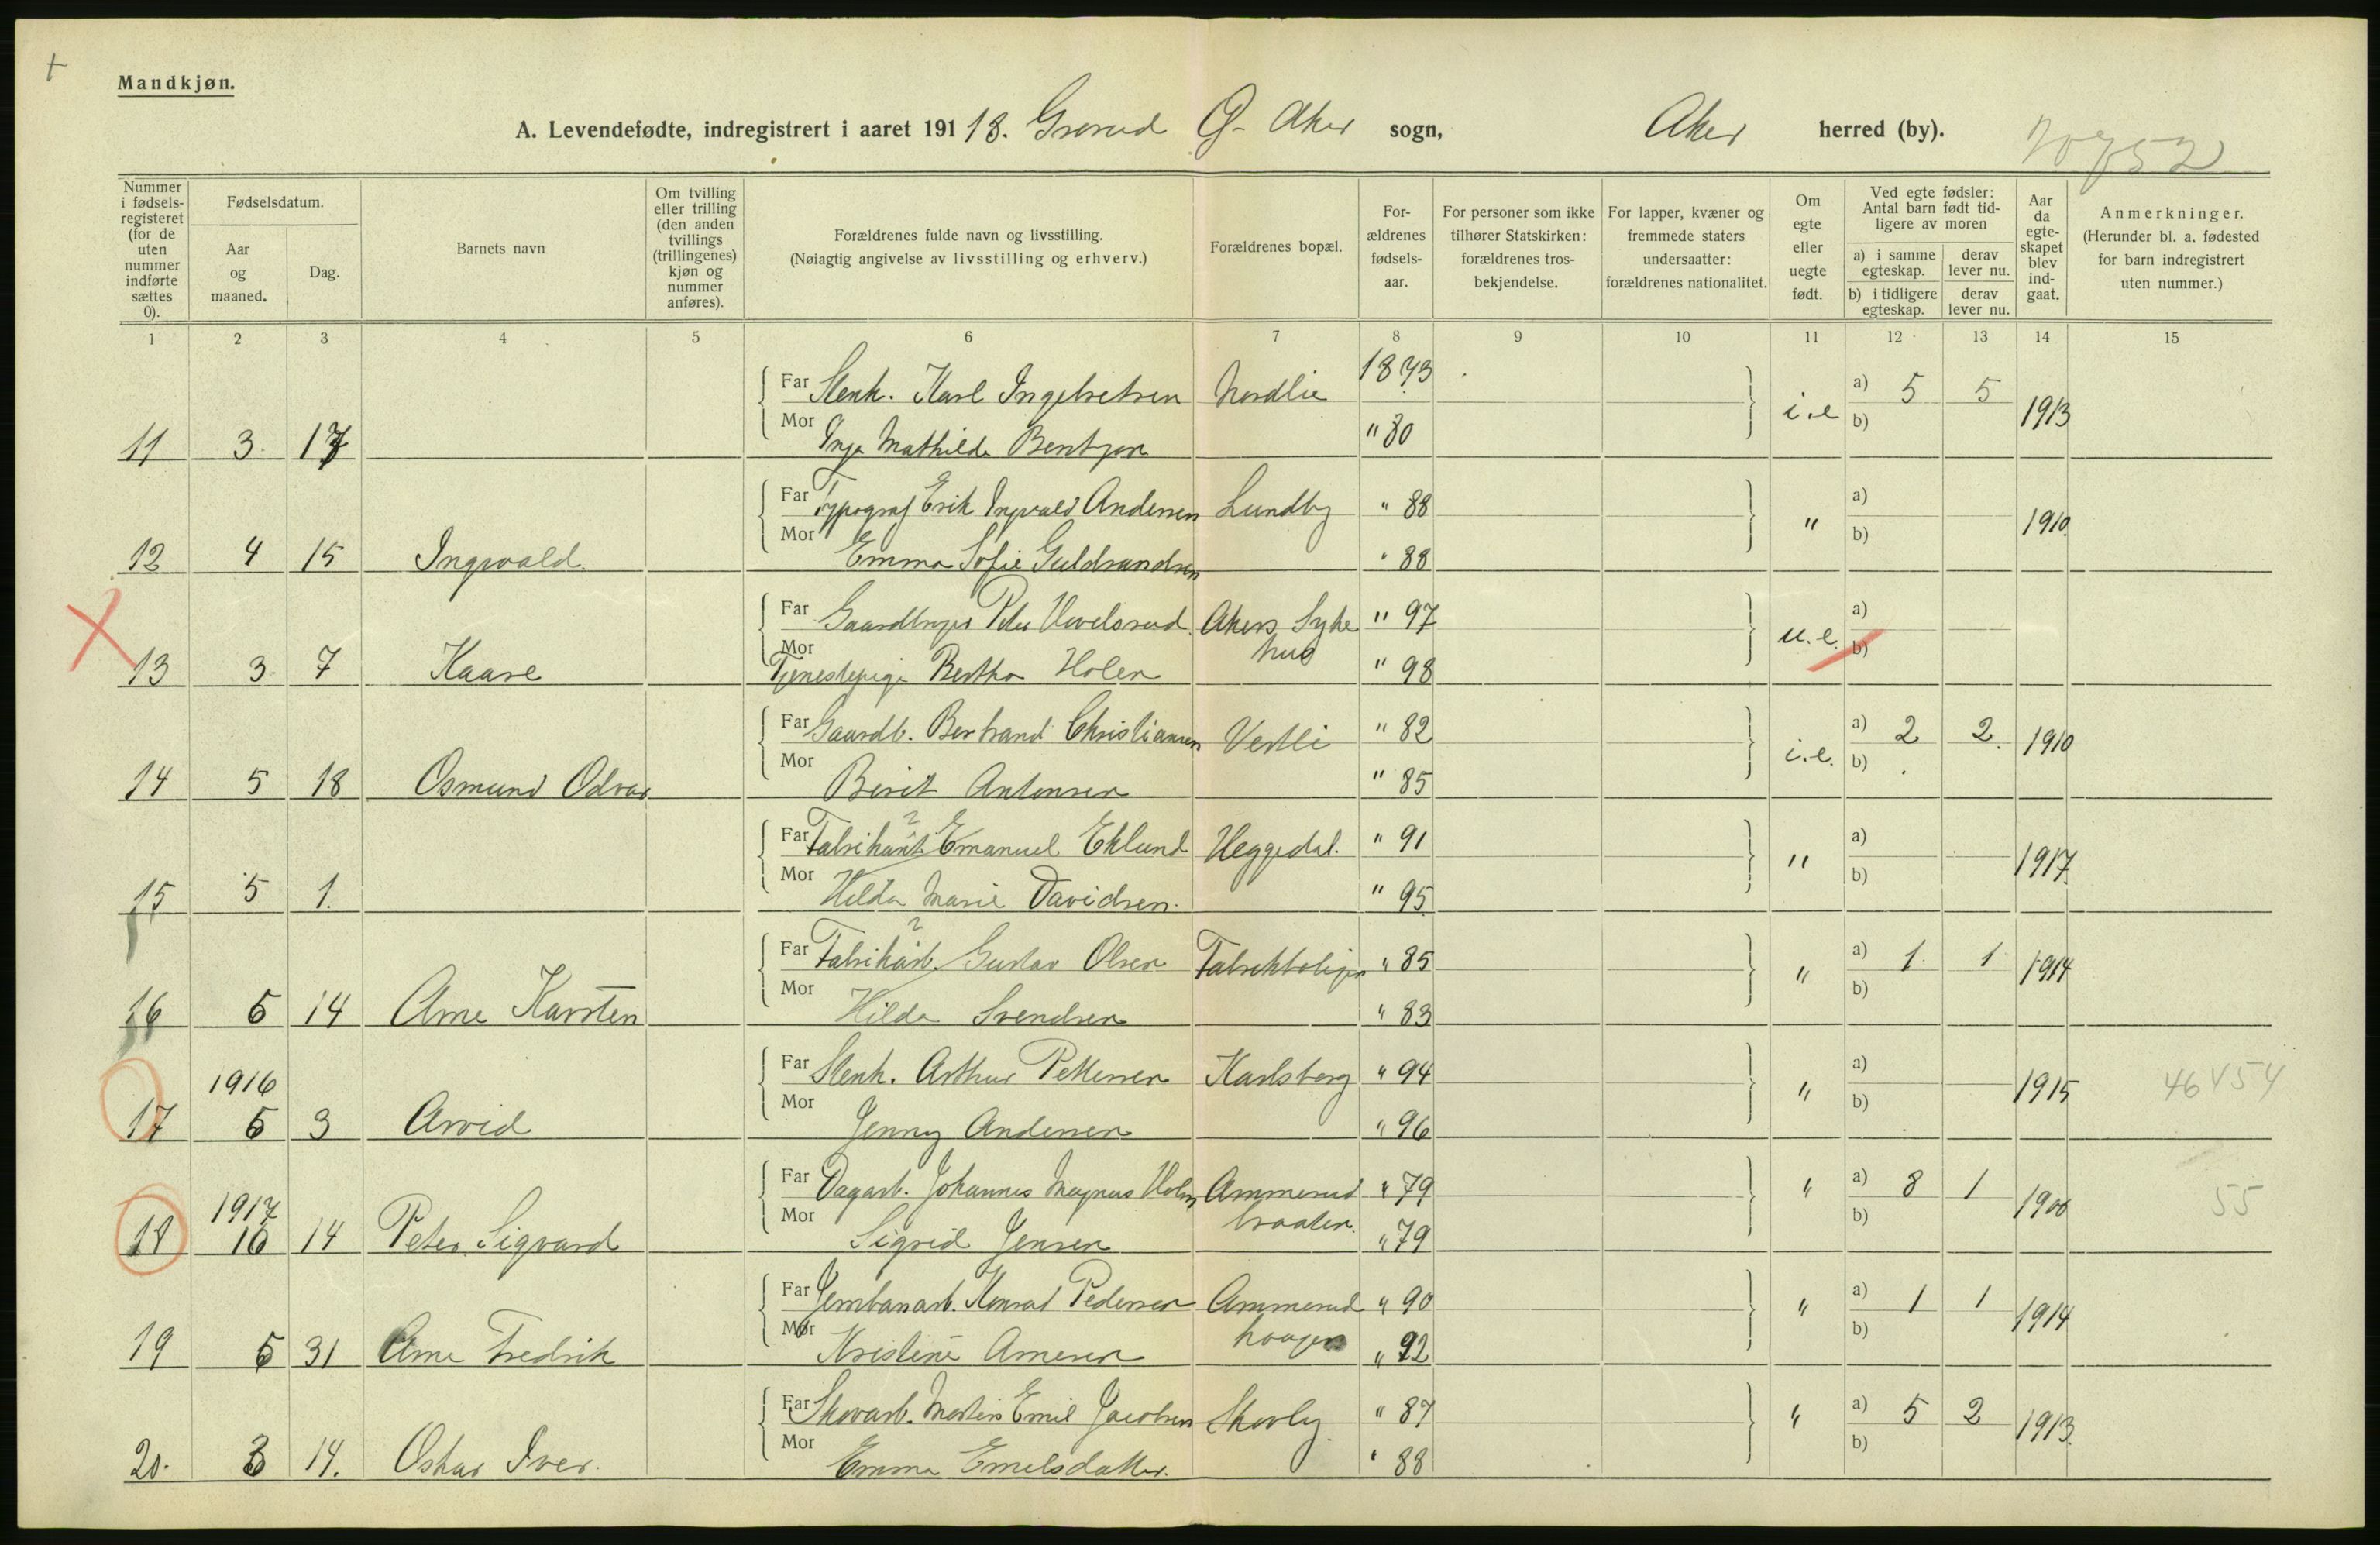 Mandkjøn.
A. Levendefødte, indregistrert i aaret 191 18. Grorud Ø. Aker sogn, Aker herred (by).
Nummer i fødsels-registeret (for de uten nummer indførte sættes 0).
Fødselsdatum.
Aar og maaned.
Dag.
Barnets navn
Om tvilling eller trilling (den anden tvillings (trillingenes) kjøn og nummer anføres).
Forældrenes fulde navn og livsstilling.
(Nøiagtig angivelse av livsstilling og erhverv.)
Forældrenes bopæl.
For-ældrenes fødsels-aar.
For personer som ikke tilhører Statskirken: forældrenes tros-bekjendelse.
For lapper, kvæner og fremmede staters undersaatter: forældrenes nationalitet.
Om egte eller uegte født.
Ved egte fødsler: Antal barn født tid-ligere av moren
a) i samme egteskap.
derav lever nu.
b) i tidligere egteskap.
derav lever nu.
Aar da egte-skapet blev ind-gaat.
Anmerkninger.
(Herunder bl. a. fødested for barn indregistrert uten nummer.)
1 2 3 4 5 6 7 8 9 10 11 12 13 14 15
Far Stenh. Karl Ingebretsen Nordlie 1873 i.e a) 5 5 1913
11 3 17 Mor Inga Mathilde Bentzen " 80 b)
Far Typograf Erik Ingvald Andersen Lundby " 88 " a) 1910
12 4 15 Ingvald Mor Emma Sofie Guldbrandsen " 88 b)
Far Gaardbruger Peter Hevelsrud Akers Syke hus " 97 u.e. a)
13 3 7 Kaare Mor Tjenestepige Bertha Holen " 98 b)
Far Gaardb. Bertrand Christiansen Vestli " 82 i.e. a) 2 2 1910
14 5 18 Osmund Odvar Mor Berit Antonsen " 85 b)
Far Fabrikant Emanuel Eklund Heggedal. " 91 " a) 1917
15 5 1. Mor Hilda Marie Davidsen. " 95 b)
Far Fabrikarb. Gustav Olsen Fabrikboligen " 85 " a) 1 1 1914
16 5 14 Arne Karsten Mor Hilda Svendsen " 83 b)
1916 Far Stenh. Arthur Pettersen Karlsborg " 94 " a) 1915 46454
17 5 3 Arvid Mor Jenny Andersen " 96 b)
1917 Far Dagarb. Johannes Magnus Holm Ammerud braaten. " 79 " a) 8 1 1900 55
18 10 14 Peter Sigvard Mor Sigrid Jensen " 79 b)
Far Jernbanarb. Konrad Pedersen Ammerud haagen " 90 " a) 1 1 1914
19 5 31 Arne Fredrik Mor Kristine Arnesen " 92 b)
Far Skovarb. Martin Emil Jacobsen Skovly " 87 " a) 5 2 1913
20. 3 14. Oskar Iver. Mor Emma Emilsdatter. " 88 b)